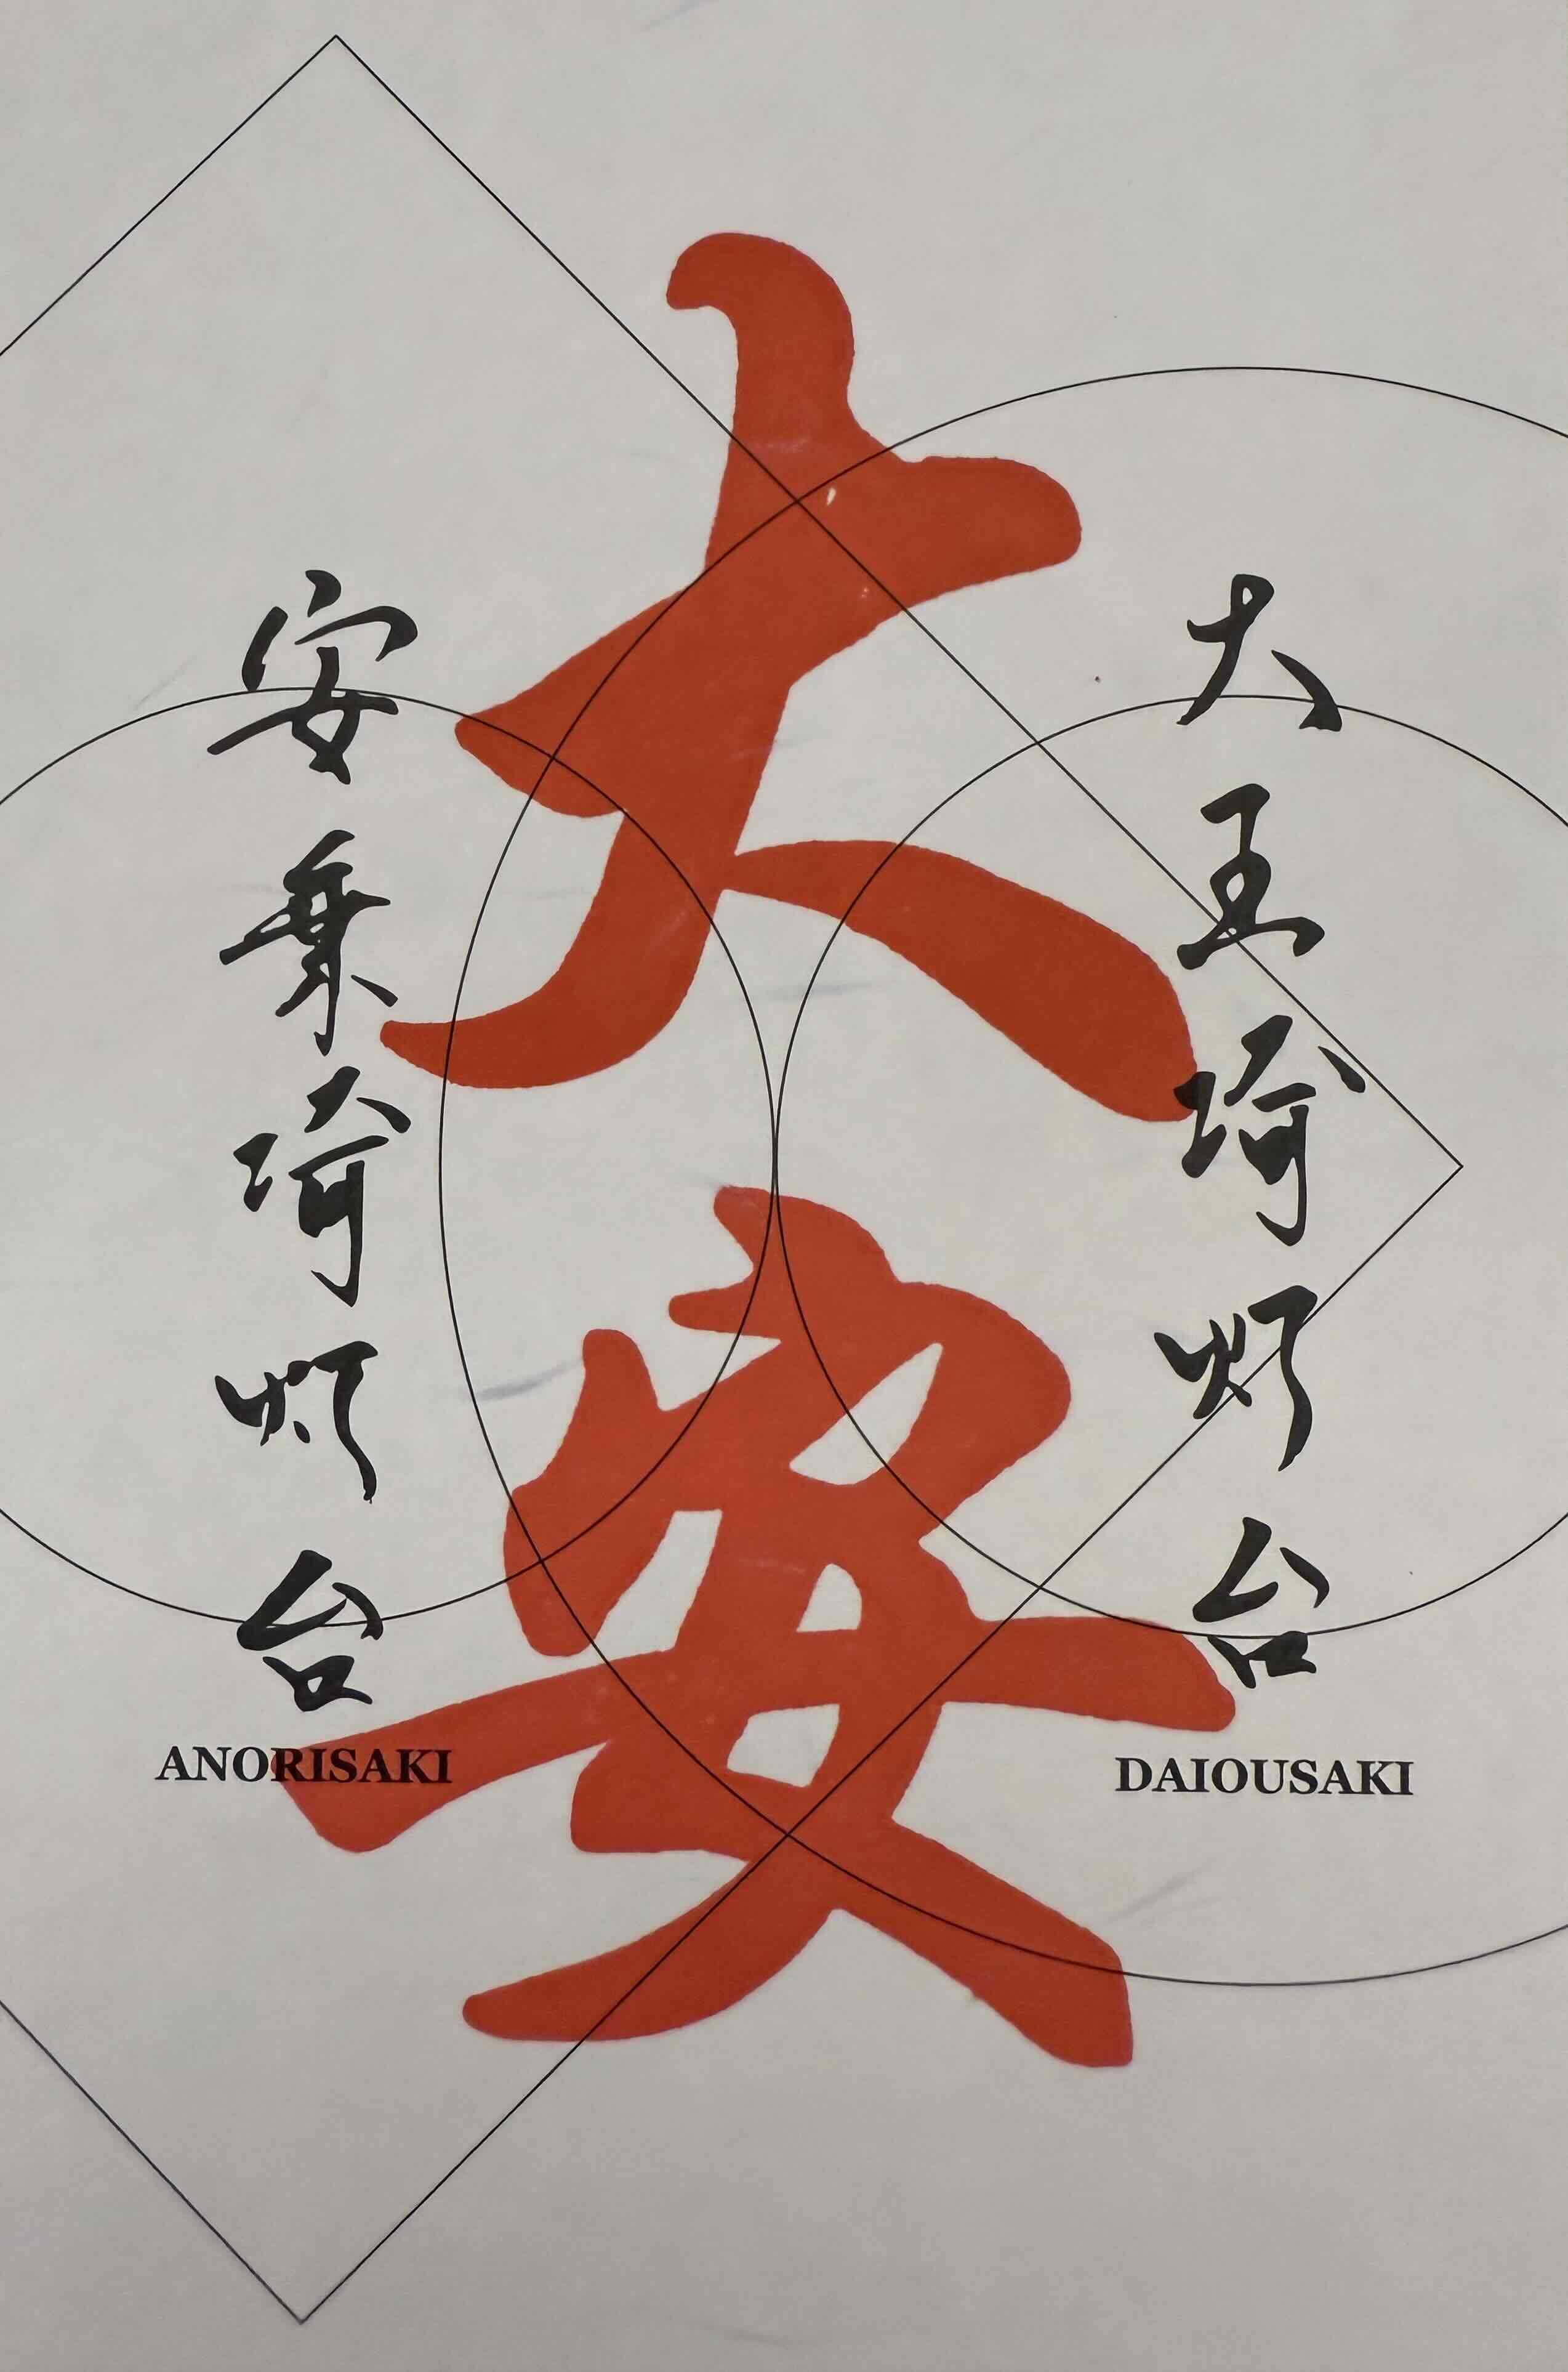 大安
大王埼灯台
DAIOUSAKI
安乗埼灯台
ANORISAKI